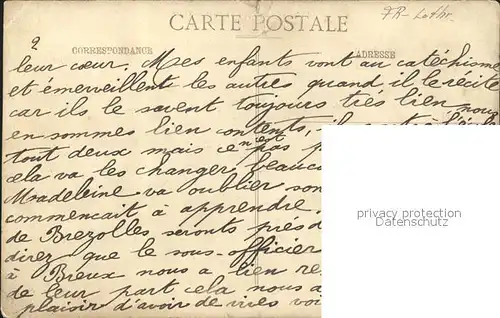 CARTE POSTALE
FR-Lothr.
2
CORRESPONDANCE
ADRESSE
leur cœur. Mes enfants vont au catéchisme
et émerveillent les autres quand il le récite
car ils le savent toujours très bien nous
en sommes bien contents, il
tout deux mais ce n'est pas
cela va les changer
Madeleine va oublier son
commencait à apprendre.
de Brezolles seronts près d
direz que le sous-officier
à Breux nous a bien re
de leur part cela nous a
plaisir d'avoir de vives voi
privacy protection
www.oldthing.de